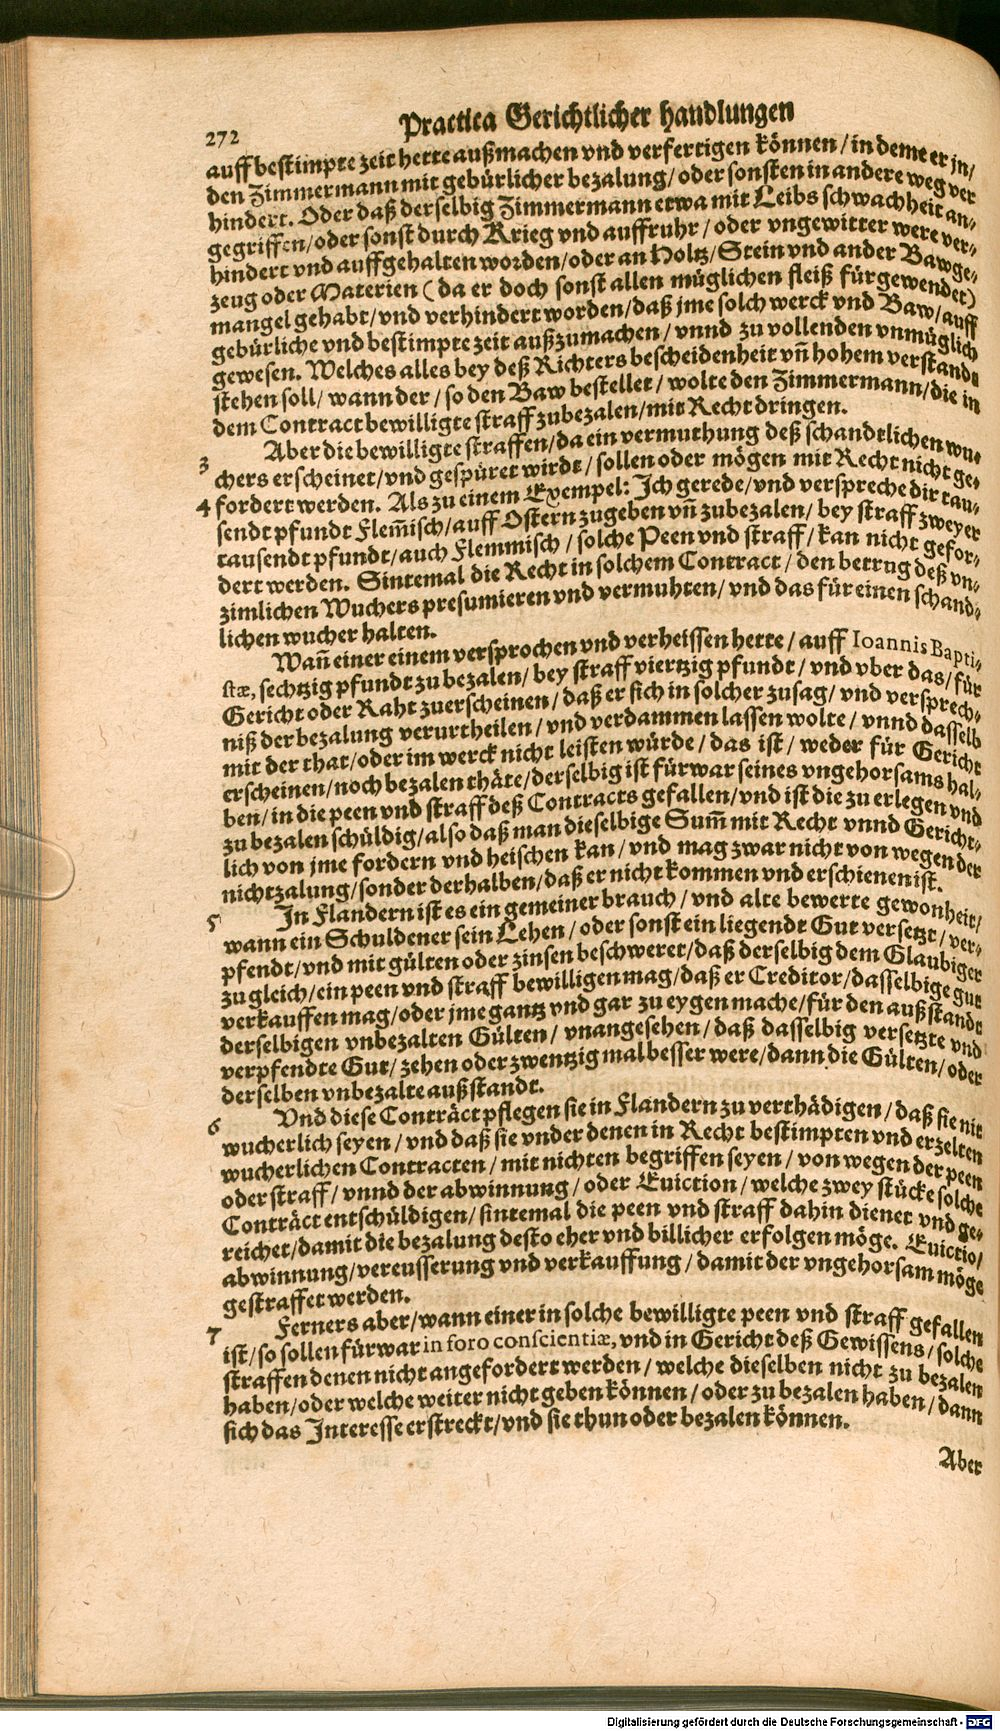 272
Practica Gerichtlicher handlungen
auff bestimpte zeit hette außmachen vnd verfertigen können / in deme er jn/
den Zimmermann mit gebürlicher bezalung/ oder sonsten in andere weg ver
hindert. Oder daß derselbig Zimmermann etwa mit Leibs schwachheit an-
gegriffen/oder sonst durch Krieg vnd auffruhr / oder vngewitter were ver-
hindert vnd auffgehalten worden/oder an Holtz/ Stein vnd ander Bawge-
zeug oder Materien (da er doch sonst allen müglichen fleiß fürgewendet)
mangel gehabt/vnd verhindert worden/daß jme solch werck vnd Baw/auff
gebürliche vnd bestimpte zeit außzumachen / vnnd zu vollenden vnmüglich
gewesen. Welches alles bey deß Richters bescheidenheit vñ hohem verstande
stehen soll/ wann der / so den Baw bestellet / wolte den Zimmermann/die in
dem Contract bewilligte straff zubezalen/mit Recht dringen.
Aber die bewilligte straffen/da ein vermuthung deß schandtlichen wu-
3 chers erscheinet/vnd gespüret wirdt / sollen oder mögen mit Recht nicht ge-
4 fordert werden. Als zu einem Exempel: Ich gerede/vnd verspreche dir tau-
sendt pfundt Flem̃isch/auff Ostern zugeben vñ zubezalen/ bey straff zweyer
tausendt pfundt/auch Flemmisch / solche Peen vnd straff/ kan nicht gefor-
dert werden. Sintemal die Recht in solchem Contract / den betrug deß vn-
zimlichen Wuchers presumieren vnd vermuhten/ vnd das für einen schand-
lichen wucher halten.
Wañ einer einem versprochen vnd verheissen hette / auff Ioannis Bapti-
stæ, sechtzig pfundt zu bezalen/ bey straff viertzig pfundt/ vnd vber das/ für
Gericht oder Raht zuerscheinen/ daß er sich in solcher zusag/ vnd versprech-
niß der bezalung verurtheilen / vnd verdammen lassen wolte / vnnd dasselb
mit der that/oder im werck nicht leisten würde / das ist / weder für Gericht
erscheinen/noch bezalen thäte/derselbig ist fürwar seines vngehorsams hal-
ben/ in die peen vnd straff deß Contracts gefallen/vnd ist die zu erlegen vnd
zu bezalen schüldig/also daß man dieselbige Sum̃ mit Recht vnnd Gericht-
lich von jme fordern vnd heischen kan/ vnd mag zwar nicht von wegen der
nichtzalung/sonder derhalben/daß er nicht kommen vnd erschienen ist.
5 In Flandern ist es ein gemeiner brauch/ vnd alte bewerte gewonheit/
wann ein Schuldener sein Lehen / oder sonst ein liegendt Gut versetzt / ver-
pfendt/vnd mit gülten oder zinsen beschweret/daß derselbig dem Glaubiger
zu gleich/ein peen vnd straff bewilligen mag/daß er Creditor/dasselbige gut
verkauffen mag/oder jme gantz vnd gar zu eygen mache/für den außstandt
derselbigen vnbezalten Gülten/ vnangesehen/ daß dasselbig versetzte vnd
verpfendte Gut/ zehen oder zwentzig mal besser were/dann die Gülten/oder
derselben vnbezalte außstandt.
6 Vnd diese Conträct pflegen sie in Flandern zu verthädigen / daß sie nit
wucherlich seyen / vnd daß sie vnder denen in Recht bestimpten vnd erzelten
wucherlichen Contracten / mit nichten begriffen seyen / von wegen der peen
oder straff/ vnnd der abwinnung/ oder Euiction/ welche zwey stücke solche
Conträct entschüldigen/ sintemal die peen vnd straff dahin dienet vnd ge-
reichet/damit die bezalung desto eher vnd billicher erfolgen möge. Euictio/
abwinnung/vereusserung vnd verkauffung / damit der vngehorsam möge
gestraffet werden.
7 Ferners aber/wann einer in solche bewilligte peen vnd straff gefallen
ist/ so sollen fürwar in foro conscientiæ, vnd in Gericht deß Gewissens/ solche
straffen denen nicht angefordert werden / welche dieselben nicht zu bezalen
haben/oder welche weiter nicht geben können / oder zu bezalen haben / dann
sich das Interesse erstreckt/vnd sie thun oder bezalen können.
Aber
Digitalisierung gefördert durch die Deutsche Forschungsgemeinschaft - DFG